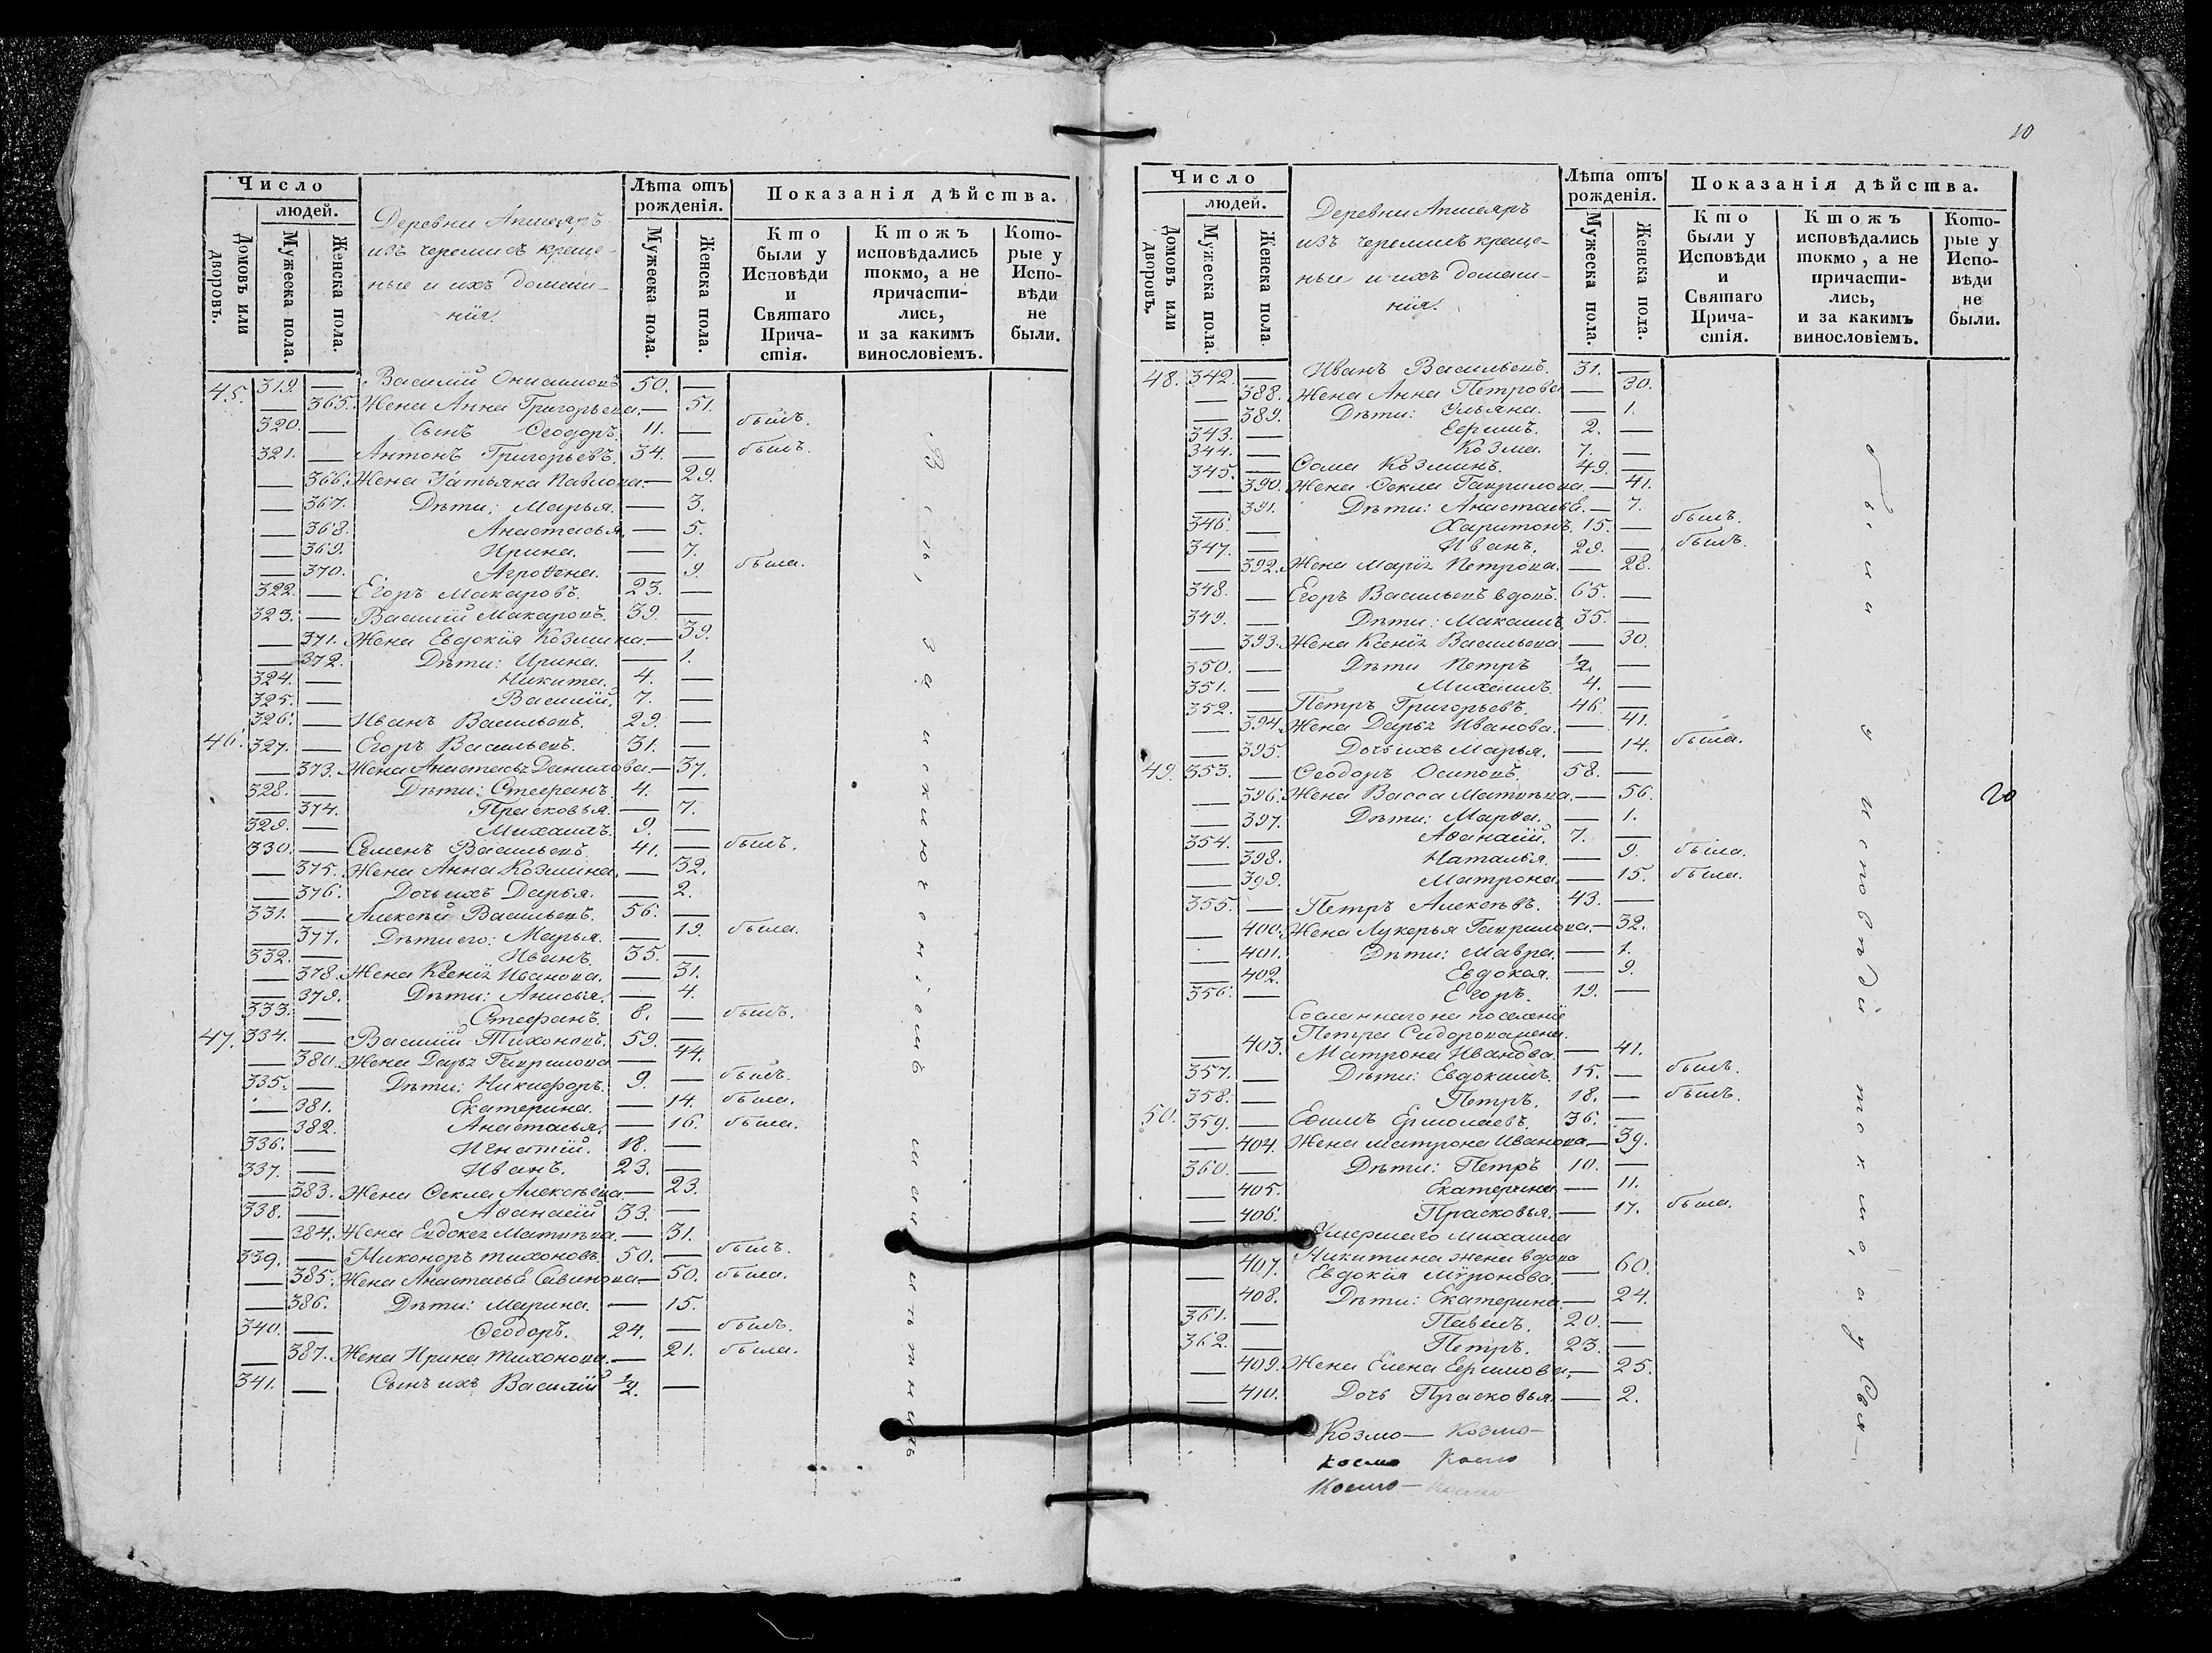 Число
людей.
Домовъ или дворовъ.
Мужеска пола.
Женска пола.
Деревни Апшеяръ
изъ черемисъ креще-
ные и ихъ домаш-
нія.
Лѣта отъ рожденія.
Мужеска пола.
Женска пола.
Показанія дѣйства.
Кто были у Исповѣди и Святаго Причастія.
Ктожъ исповѣдались токмо, а не причасти-лись, и за какимъ винословіемъ.
Кото-рые у Испо-вѣди не были.
45. 319. — Василій Онисимовъ 50. —
— 365. Жена Анна Григорьева. — 51.
320. — Сынъ Ѳеодоръ. 11. — былъ.
321. — Антонъ Григорьевъ. 34. — былъ.
— 366. Жена Татьяна Павлова — 29.
— 367. Дѣти: Марья. — 3.
— 368. Анастасья. — 5.
— 369. Ирина. — 7.
— 370. Агрофена. — 9. была.
322. — Егоръ Макаровъ. 23. —
323. — Василій Макаровъ. 39. —
— 371. Жена Евдокія Козмина — 39.
— 372. Дѣти: Ирина. — 1.
324. — Никита. 4. —
325. — Василій. 7. —
326. — Иванъ Васильевъ. 29. —
46. 327. — Егоръ Васильевъ. 31. —
— 373. Жена Анастасья Данилова. — 37.
328. — Дѣти: Стефанъ. 4. —
— 374. Прасковья. — 7.
329. — Михаилъ. 9. —
330. — Семенъ Васильевъ. 41. — былъ.
— 375. Жена Анна Козмина. — 32.
— 376. Дочь ихъ Дарья. — 2.
331. — Алексѣй Васильевъ. 56. —
— 377. Дѣти его: Марья. — 19. была.
332. — Иванъ. 35. —
— 378. Жена Ксенія Иванова. — 31.
— 379. Дѣти: Анисья. — 4.
333. — Стефанъ. 8. — былъ.
47. 334. — Василій Тихоновъ. 59. —
— 380. Жена Дарья Гаврилова — 44.
335. — Дѣти: Никифоръ. 9. — былъ.
— 381. Екатерина. — 14. была.
— 382. Анастасья. — 16. была.
336. — Игнатій. 18. —
337. — Иванъ. 23. —
— 383. Жена Ѳекла Алексѣева — 23.
338. — Аѳанасій 33. —
— 384. Жена Евдокея Матвѣева. — 31.
339. — Никоноръ Тихоновъ. 50. — былъ.
— 385. Жена Анастасья Савинова — 50. была.
— 386. Дѣти: Марина. — 15.
340. — Ѳеодоръ. 24. — былъ.
— 387. Жена Ирина Тихонова. — 21. была.
341. — Сынъ ихъ Василій ½. —
Всѣ, за исключеніемъ
10
Число
людей.
Домовъ или дворовъ.
Мужеска пола.
Женска пола.
Деревни Апшеяръ
изъ черемисъ креще-
ные и ихъ домаш-
нія.
Лѣта отъ рожденія.
Мужеска пола.
Женска пола.
Показанія дѣйства.
Кто были у Исповѣди и Святаго Прича-стія.
Ктожъ исповѣдались токмо, а не причасти-лись, и за какимъ винословіемъ.
Кото-рые у Испо-вѣди не были.
48. 342. — Иванъ Васильевъ. 31. —
— 388. Жена Анна Петрова — 30.
— 389. Дѣти: Ульяна. — 1.
343. — Ефимъ. 2. —
344. — Козма. 7. —
345. — Сома Козминъ. 49. —
— 390. Жена Ѳекла Гаврилова. — 41.
— 391. Дѣти: Анастасья. — 7.
346. — Харитонъ. 15. — былъ.
347. — Иванъ. 29. — былъ.
— 392. Жена Марія Петрова. — 28.
348. — Егоръ Васильевъ вдовъ. 65. —
349. — Дѣти: Макаилъ 35. —
— 393. Жена Ксенія Васильева — 30.
350. — Дѣти Петръ ½. —
351. — Михаилъ. 4. —
352. — Петръ Григорьевъ. 46 —
— 394. Жена Дарья Иванова. — 41.
— 395. Дочь ихъ Марья. — 14. была.
49. 353. — Ѳеодоръ Осиповъ. 58. —
— 396. Жена Васса Матвѣева. — 56.
— 397. Дѣти: Марѳа. — 1.
354. — Аѳанасій. 7. —
— 398. Наталья. — 9. была.
— 399. Матрона. — 15. была.
355. — Петръ Алексѣевъ. 43. —
— 400. Жена Лукерья Гаврилова. — 32.
— 401. Дѣти: Мавра. — 1.
— 402. Евдокея. — 9.
356. — Егоръ. 19. —
Сосланнаго на поселеніе
Петра Сидорова жена
— 403. Матрона Иванова. — 41.
357. — Дѣти: Евдокимъ. 15. — былъ.
358. — Петръ. 18. — былъ.
50. 359. — Ефимъ Ермолаевъ. 36. —
— 404. Жена Матрона Иванова — 39.
360. — Дѣти: Петръ 10. —
— 405. Екатерина — 11.
— 406. Прасковья. — 17. была.
Умершаго Михаила
Никитина жена вдова
— 407. Евдокія Мѵронова. — 60.
— 408. Дѣти: Екатерина. — 24.
361. — Павелъ. 20. —
362. — Петръ. 23. —
— 409. Жена Елена Ефимова. — 25.
— 410. Дочь Прасковья. — 2.
Козмо — Козмо —
Космо Космо
Космо — Космо
были у исповѣди токмо, а у Свя-
20